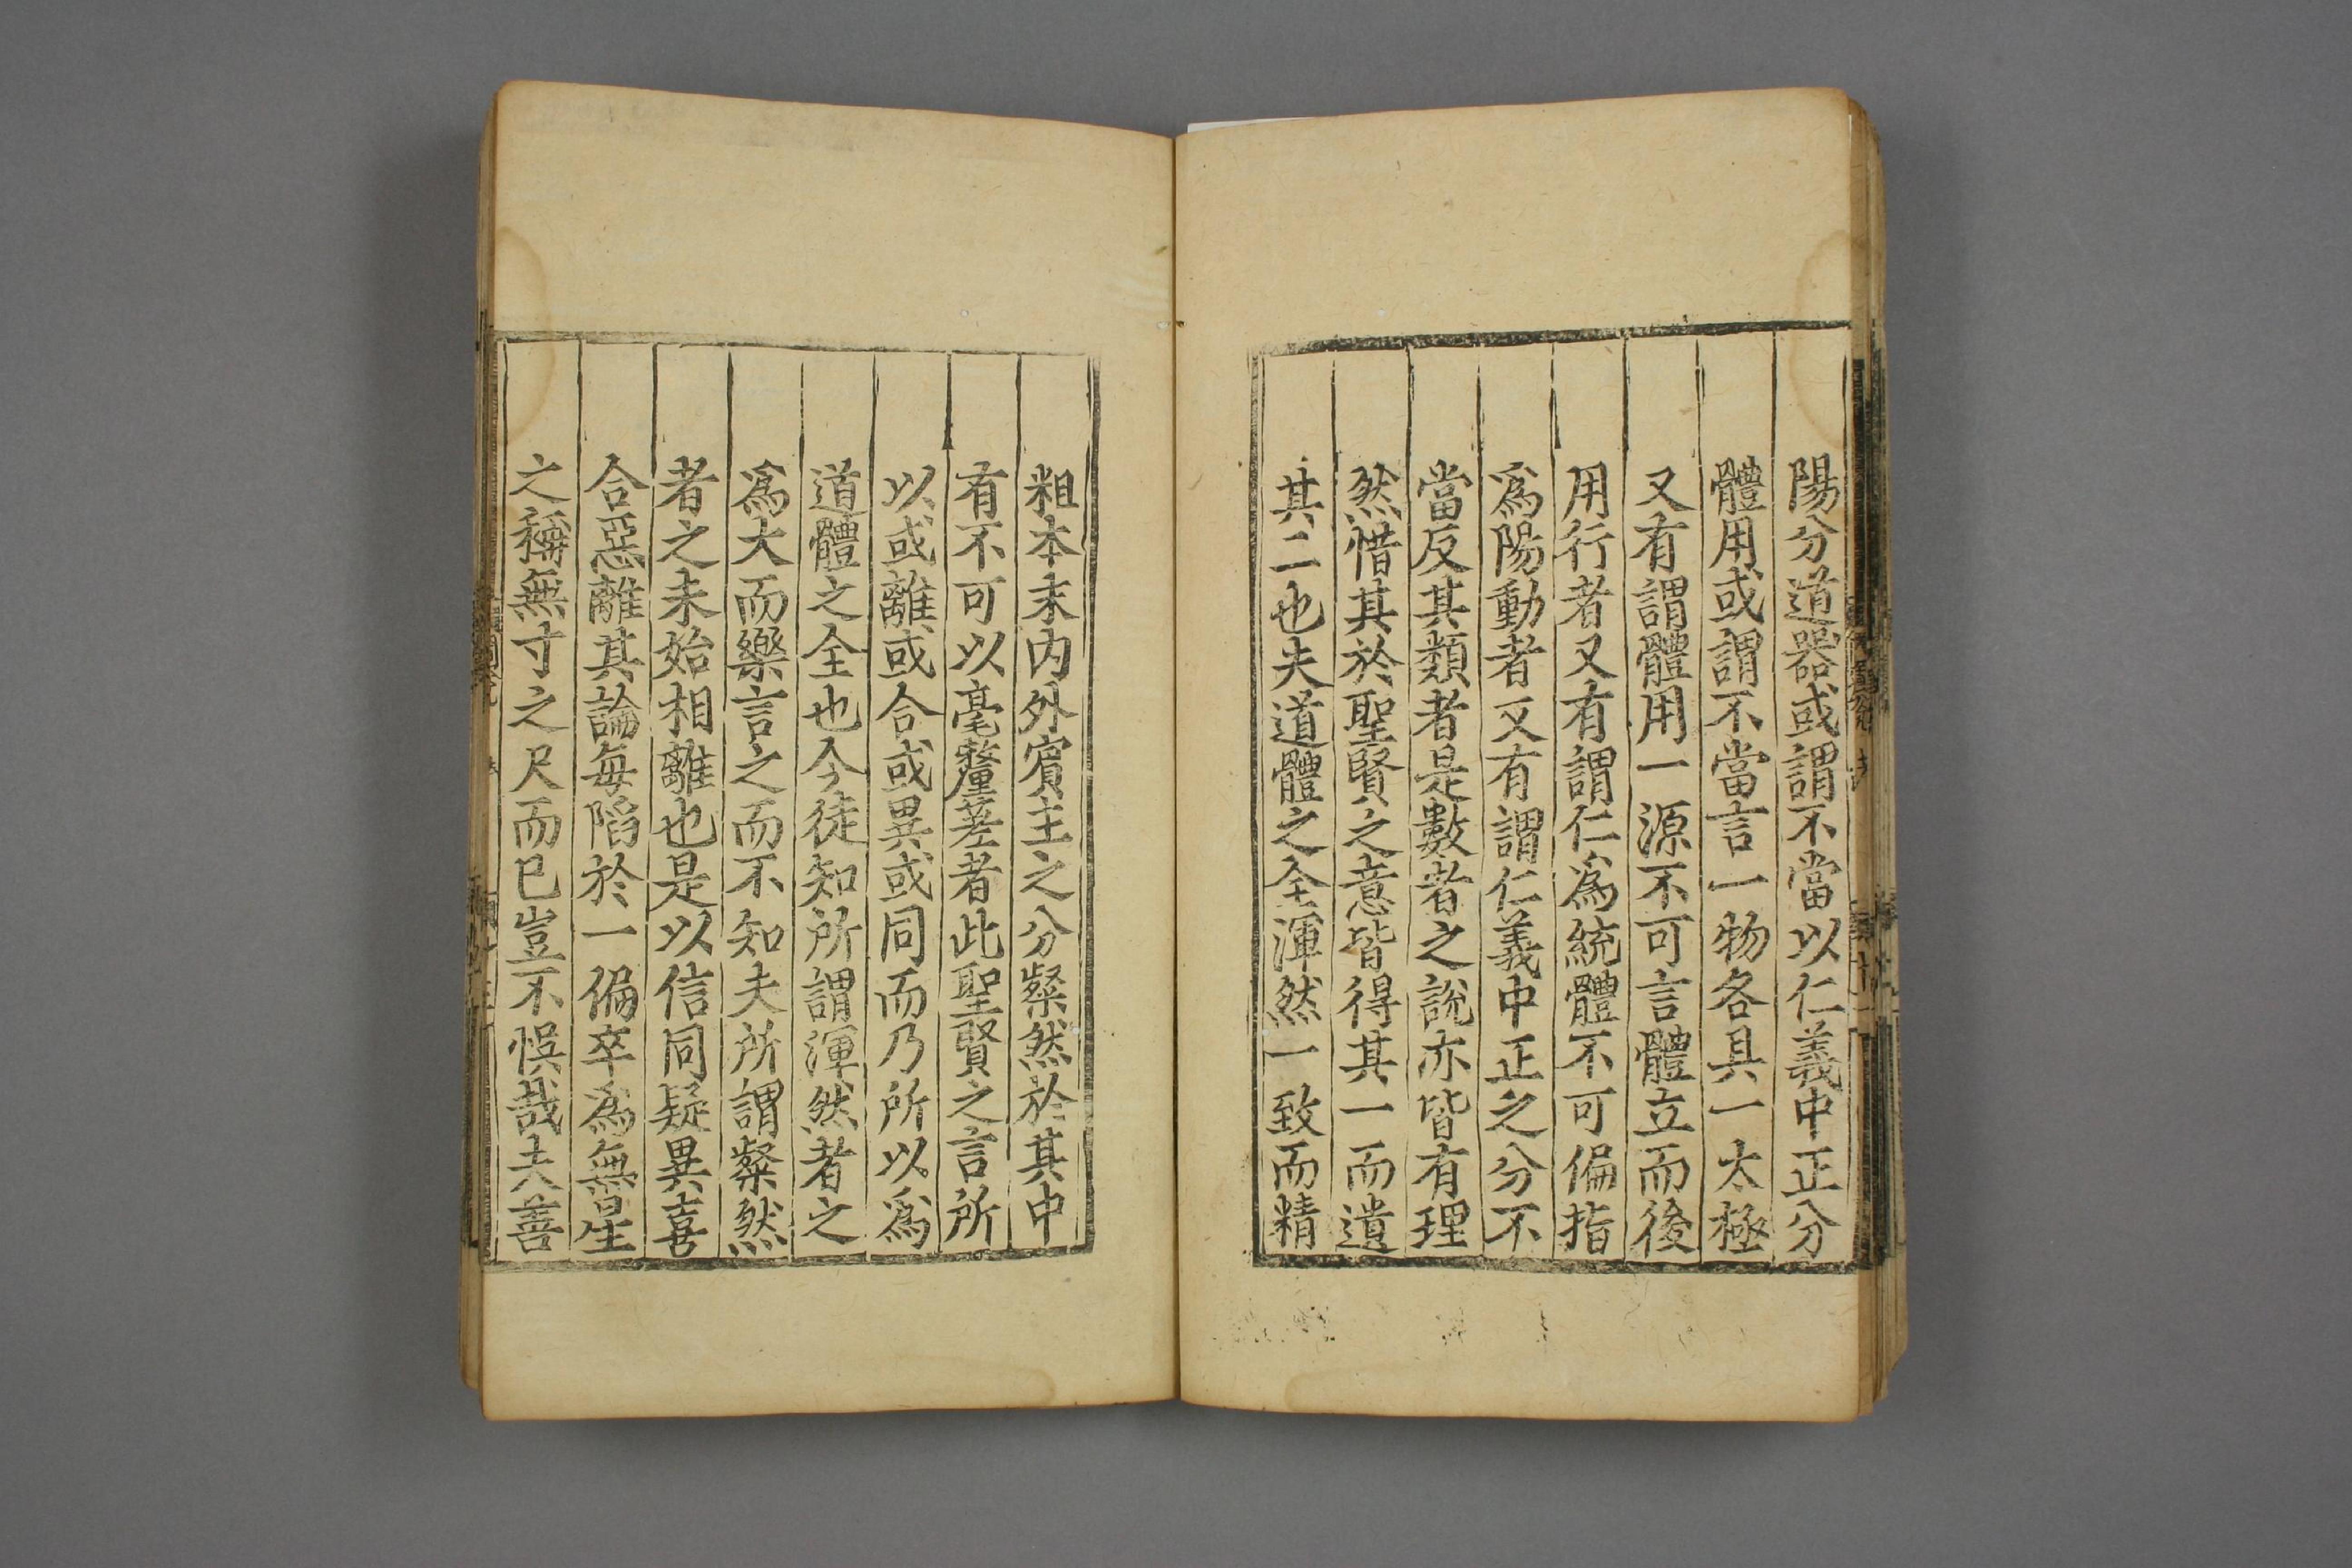 陽分道器或謂不當以仁義中正分
體用或謂不當言一物各具一太極
又有謂體用一源不可言體立而後
用行者又有謂仁爲統體不可偏指
爲陽動者又有謂仁義中正之分不
當反其類者是數者之說亦皆有理
然惜其於聖賢之意皆得其一而遺
其二也夫道體之全渾然一致而精
粗本末內外賓主之分粲然於其中
有不可以毫釐差者此聖賢之言所
以或離或合或異或同而乃所以爲
道體之全也今徒知所謂渾然者之
爲大而樂言之而不知夫所謂粲然
者之未始相離也是以信同疑異喜
合惡離其論每陷於一偏卒爲無星
之稱無寸之尺而已豈不悞哉夫善